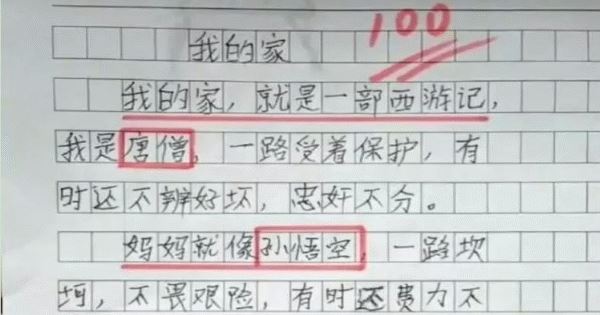 100
我的家
我的家，就是一部西游记，
我是唐僧，一路受着保护，有
时还不辨好坏，忠奸不分。
妈妈就像孙悟空，一路坎
坷，不畏艰险，有时还费力不